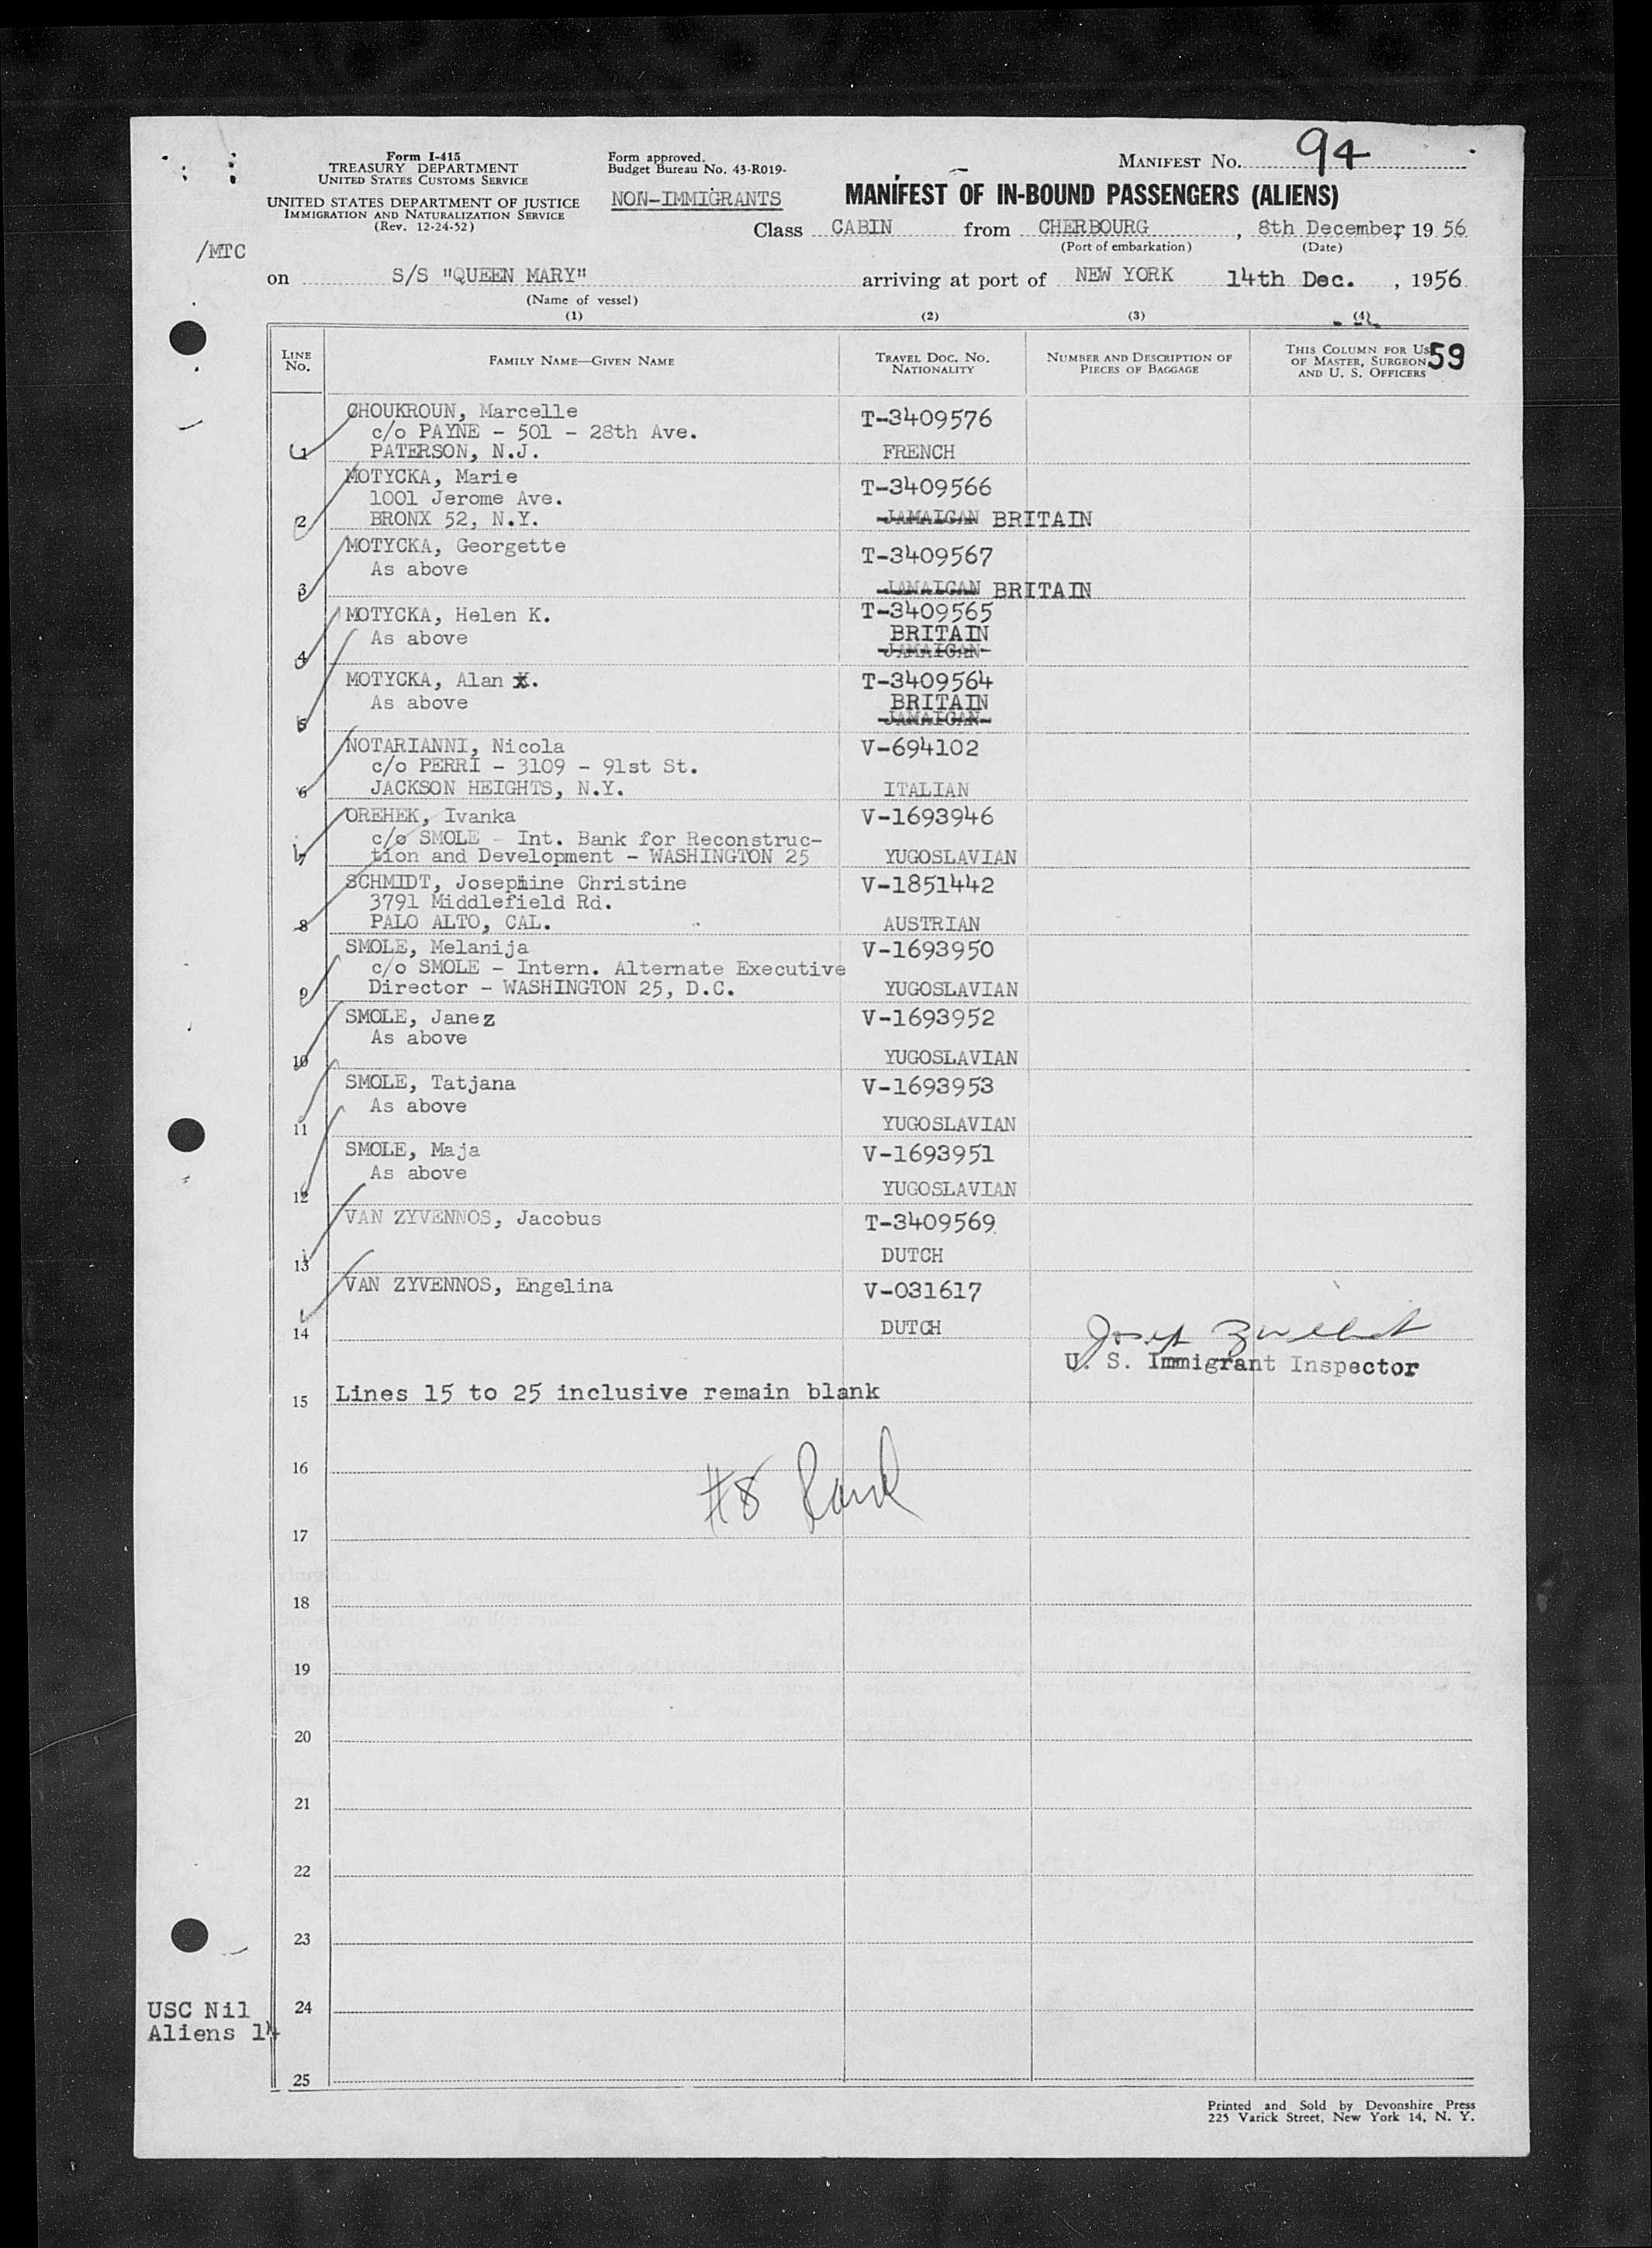 Form I-415
TREASURY DEPARTMENT
UNITED STATES CUSTOMS SERVICE
UNITED STATES DEPARTMENT OF JUSTICE
IMMIGRATION AND NATURALIZATION SERVICE
(Rev. 12-24-52)
Form approved.
Budget Bureau No. 43-R019-
NON-IMMIGRANTS
MANIFEST No. 94
MANIFEST OF IN-BOUND PASSENGERS (ALIENS)
Class CABIN from CHERBOURG, 8th December, 19 56
(Port of embarkation) (Date)
/MTC
on S/S "QUEEN MARY" arriving at port of NEW YORK 14th Dec. , 1956
(Name of vessel)
(1) (2) (3) (4)
LINE No. FAMILY NAME—GIVEN NAME TRAVEL DOC. NO. NATIONALITY NUMBER AND DESCRIPTION OF PIECES OF BAGGAGE THIS COLUMN FOR USE OF MASTER, SURGEON AND U. S. OFFICERS 59
CHOUKROUN, Marcelle T-3409576
c/o PAYNE - 501 - 28th Ave.
1 PATERSON, N.J. FRENCH
MOTYCKA, Marie T-3409566
1001 Jerome Ave.
2 BRONX 52, N.Y. JAMAICAN BRITAIN
MOTYCKA, Georgette T-3409567
As above
3 JAMAICAN BRITAIN
MOTYCKA, Helen K. T-3409565
As above BRITAIN
4 JAMAICAN
MOTYCKA, Alan X. T-3409564
As above BRITAIN
5 JAMAICAN
NOTARIANNI, Nicola V-694102
c/o PERRI - 3109 - 91st St.
6 JACKSON HEIGHTS, N.Y. ITALIAN
OREHEK, Ivanka V-1693946
c/o SMOLE - Int. Bank for Reconstruc-
7 tion and Development - WASHINGTON 25 YUGOSLAVIAN
SCHMIDT, Josephine Christine V-1851442
3791 Middlefield Rd.
8 PALO ALTO, CAL. AUSTRIAN
SMOLE, Melanija V-1693950
c/o SMOLE - Intern. Alternate Executive
9 Director - WASHINGTON 25, D.C. YUGOSLAVIAN
SMOLE, Janez V-1693952
As above
10 YUGOSLAVIAN
SMOLE, Tatjana V-1693953
As above
11 YUGOSLAVIAN
SMOLE, Maja V-1693951
As above
12 YUGOSLAVIAN
VAN ZYVENNOS, Jacobus T-3409569
13 DUTCH
VAN ZYVENNOS, Engelina V-031617
14 DUTCH
Joseph
U. S. Immigrant Inspector
15 Lines 15 to 25 inclusive remain blank
16
#8
17
18
19
20
21
22
23
USC Nil 24
Aliens 14
25
Printed and Sold by Devonshire Press
225 Varick Street, New York 14, N. Y.